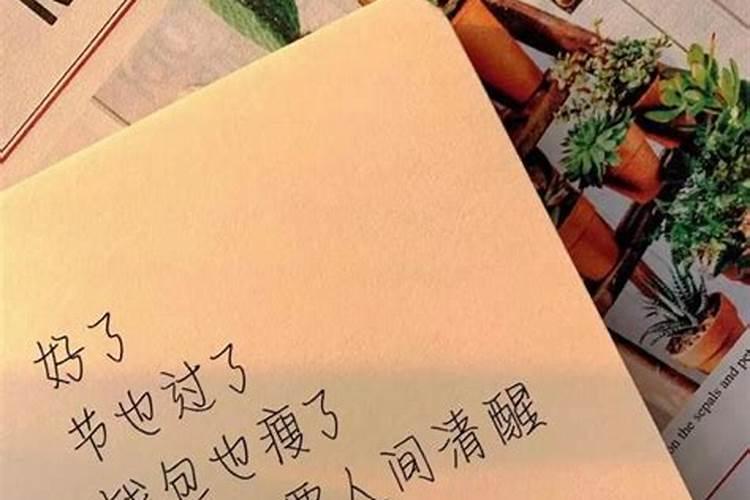 好了
节也过了
钱包也瘦了
要人间清醒
on the sepals and pet